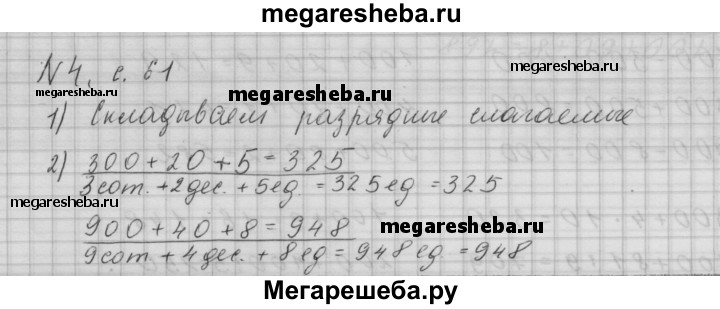 megaresheba.ru
N 4, с. 61
megaresheba.ru
megaresheba.ru
megaresheba.ru
1) Складываем разрядные слагаемые
2) 300 + 20 + 5 = 325
megaresheba.ru
3 сот. + 2 дес. + 5 ед = 325 ед = 325
900 + 40 + 8 = 948
megaresheba.ru
9 сот + 4 дес. + 8 ед = 948 ед = 948
Мегарешеба.ру